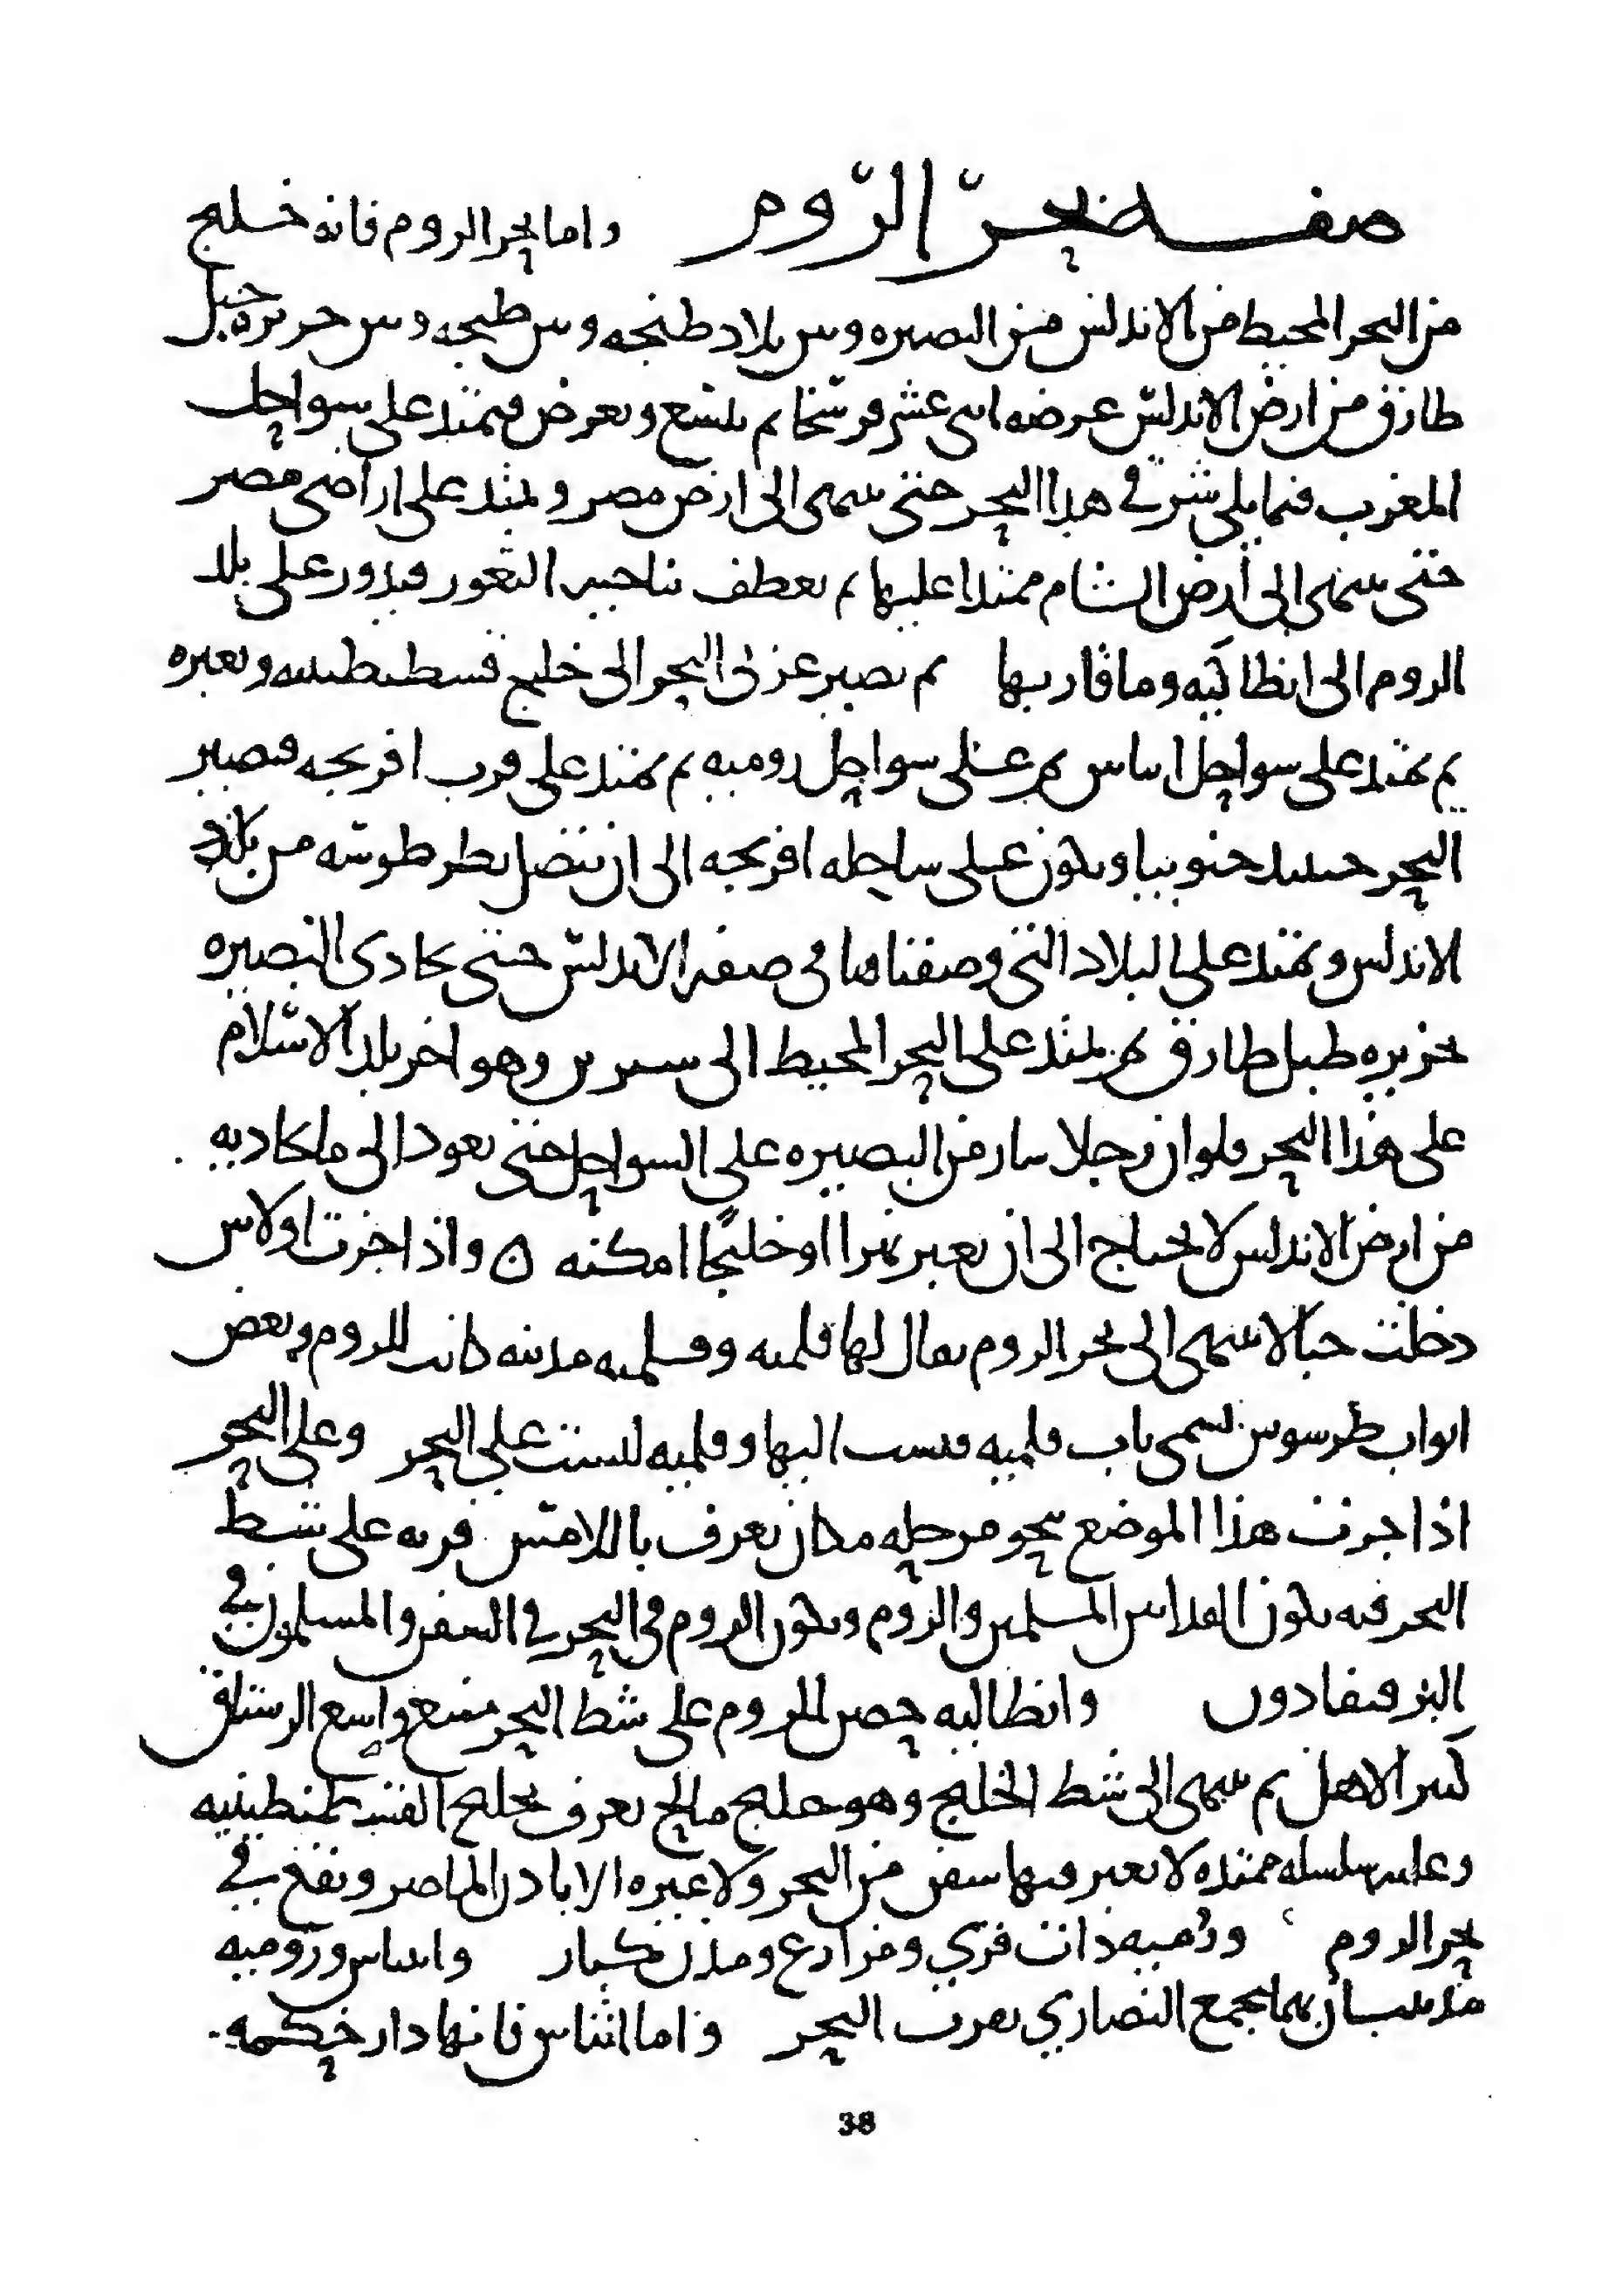 صفـــة بحرّ الرّوم واما بحر الروم فانه خليج
من البحر المحيط من الاندلس من البصيره وبين بلاد طنجه وبين طنجه وبين جزيره جبل
طارق من ارض الاندلس عرضه اثنى عشر فرسخا ثم يتسع ويعرض فيمتد على سواحل
المغرب فيما يلي شرقي هذا البحر حتى ينتهى الى ارض مصر ويمتد على اراضى مصر
حتى ينتهى الى أرض الشام ممتدا عليها ثم يعطف بناحيه الثغور فيدور على بلد
الروم الى انطاكيه وما قاربها ثم يصير غربى البحر الى خليج قسطنطينيه ويعبره
ثم يمتد على سواحل اساس ثم على سواحل روميه ثم يمتد على قرب افرنجه فيصير
البحر حينيذ جنوبيا ويكون على ساحله افرنجه الى ان يتصل بطرطوشه من بلاد
الاندلس ويمتد على البلاد التى وصفناها فى صفه الاندلس حتى يحادى البصيره
بجزيره طبل طارق ثم يمتد على البحر المحيط الى سىرىن وهو اخر بلد الاسلام
على هذا البحر ولو ان رجلا سار من البصيره على السواحل حتى يعود الى ما يحاديه
من ارض الاندلس لا يحتاج الى ان يعبر نهرا او خليجًا امكنه ن واذا جزت اولاس
دخلت جبالا تنتهى الى بحر الروم يقال لها قلميه وقلميه مدينه كانت للروم وبعض
ابواب طرسوس تسمى باب قلميه فنسب اليها وقلميه ليست على البحر وعلى البحر
اذا جزت هذا الموضع بنحو مرحله مكان يعرف باللامس قريه على شط
البحر فيه يكون الفدا بين المسلمين والروم ويكون الروم فى البحر في السفن والمسلمون في
البر فيفادون وانطاليه حصن للروم على شط البحر منيع واسع الرستاق
كثير الاهل ثم ينتهى الى شط الخليج وهو خليج مالح يعرف بخليج القسطنطينيه
وعليه سلسله ممتده لا يعبر فيها سفن من البحر ولا غيره الا باذن الماصر ويقع في
بحر الروم وروميه ذات قري ومزارع ومدن كبار واساس وروميه
مدينتان بهما يجمع النصاري بقرب البحر واما اثناس فانها دار حكمه
38